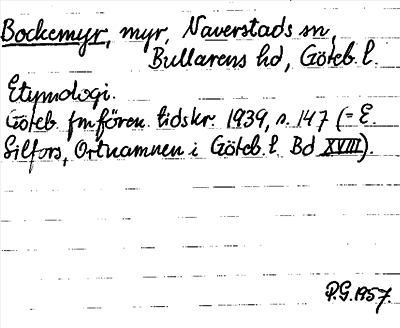 Bockemyr, myr, Naverstads sn,
Bullarens hd, Göteb. l.
Etymologi.
Göteb. fmfören. tidskr. 1939, s. 147 (= E.
Silfors, Ortnamnen i Göteb. l. Bd XVIII).
P.G. 1957.